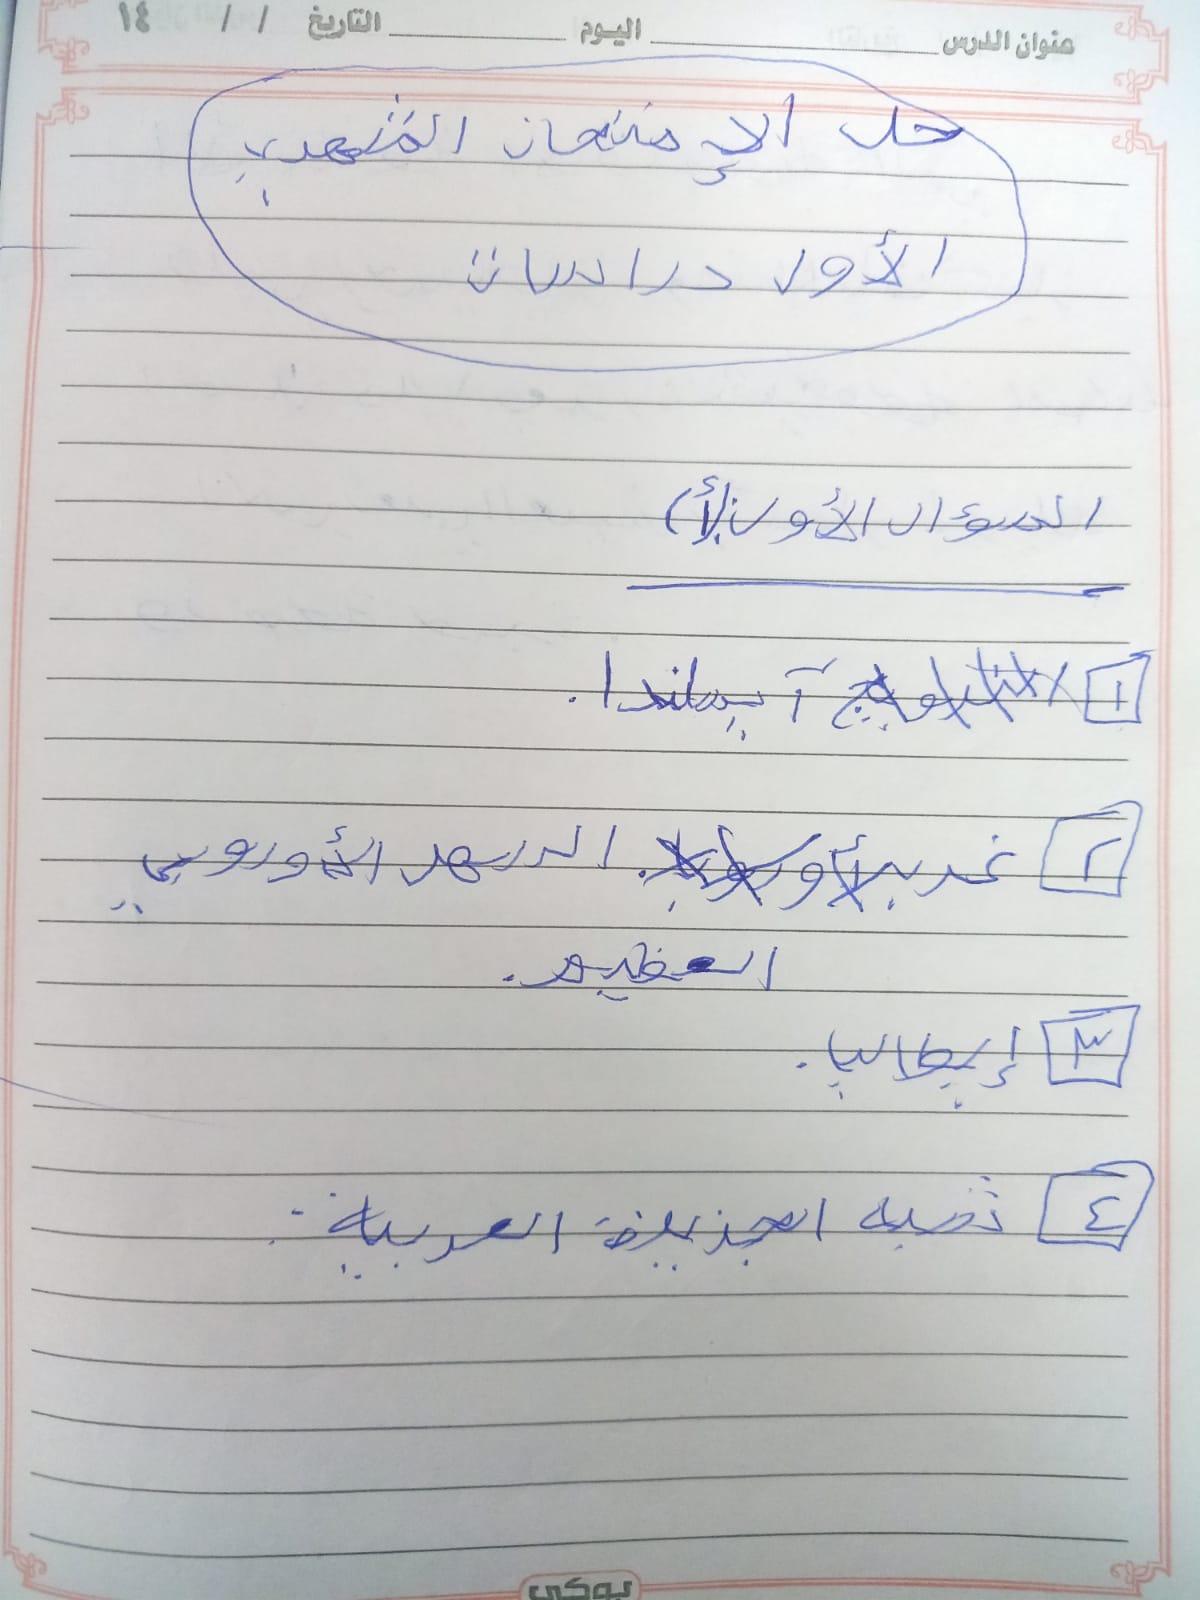 عنوان الدرس اليوم التاريخ / / ١٤
حل الإمتحان الشهري
الأول دراسات
السؤال الأول (أ)
١ آيسلندا.
٢ غرب السهل الأوروبي
العظيم.
٣ إيطاليا.
٤ شبه الجزيرة العربية.
يوكي